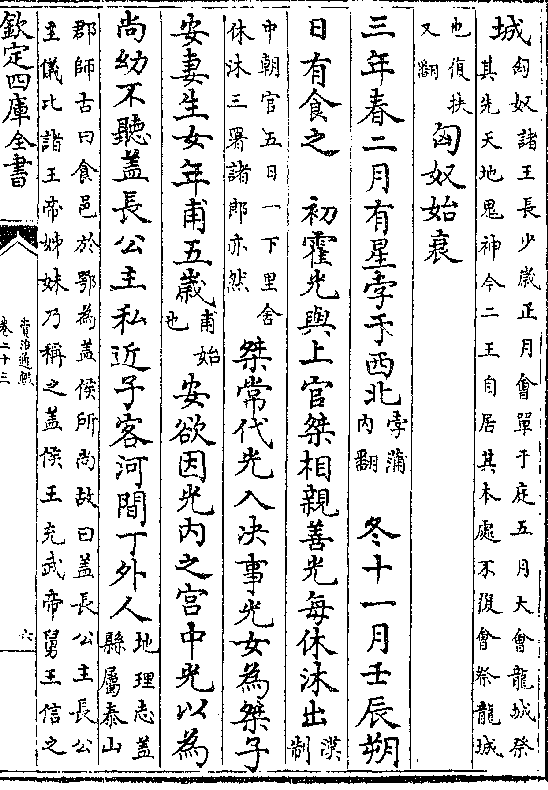 城匈奴諸王長少歲正月會單于庭五月大會龍城祭
其先天地鬼神今二王自居其本處不復會祭龍城
也復扶
又翻匈奴始衰
三年春二月有星孛于西北孛蒲
内翻冬十一月壬辰朔
日有食之　初霍光與上官桀相親善光每休沐出漢
制
中朝官五日一下里舍
休沐三署諸郎亦然桀常代光入决事光女為桀子
安妻生女年甫五歲甫始
也安欲因光内之宫中光以為
尚幼不聽盖長公主私近子客河間丁外人地理志盖
縣屬泰山
郡師古曰食邑於鄂為盖侯所尚故曰盖長公主長公
主儀比諸王帝姊妹乃稱之盖侯王充武帝舅王信之
欽定四庫全書
資治通鑑
卷二十三
六